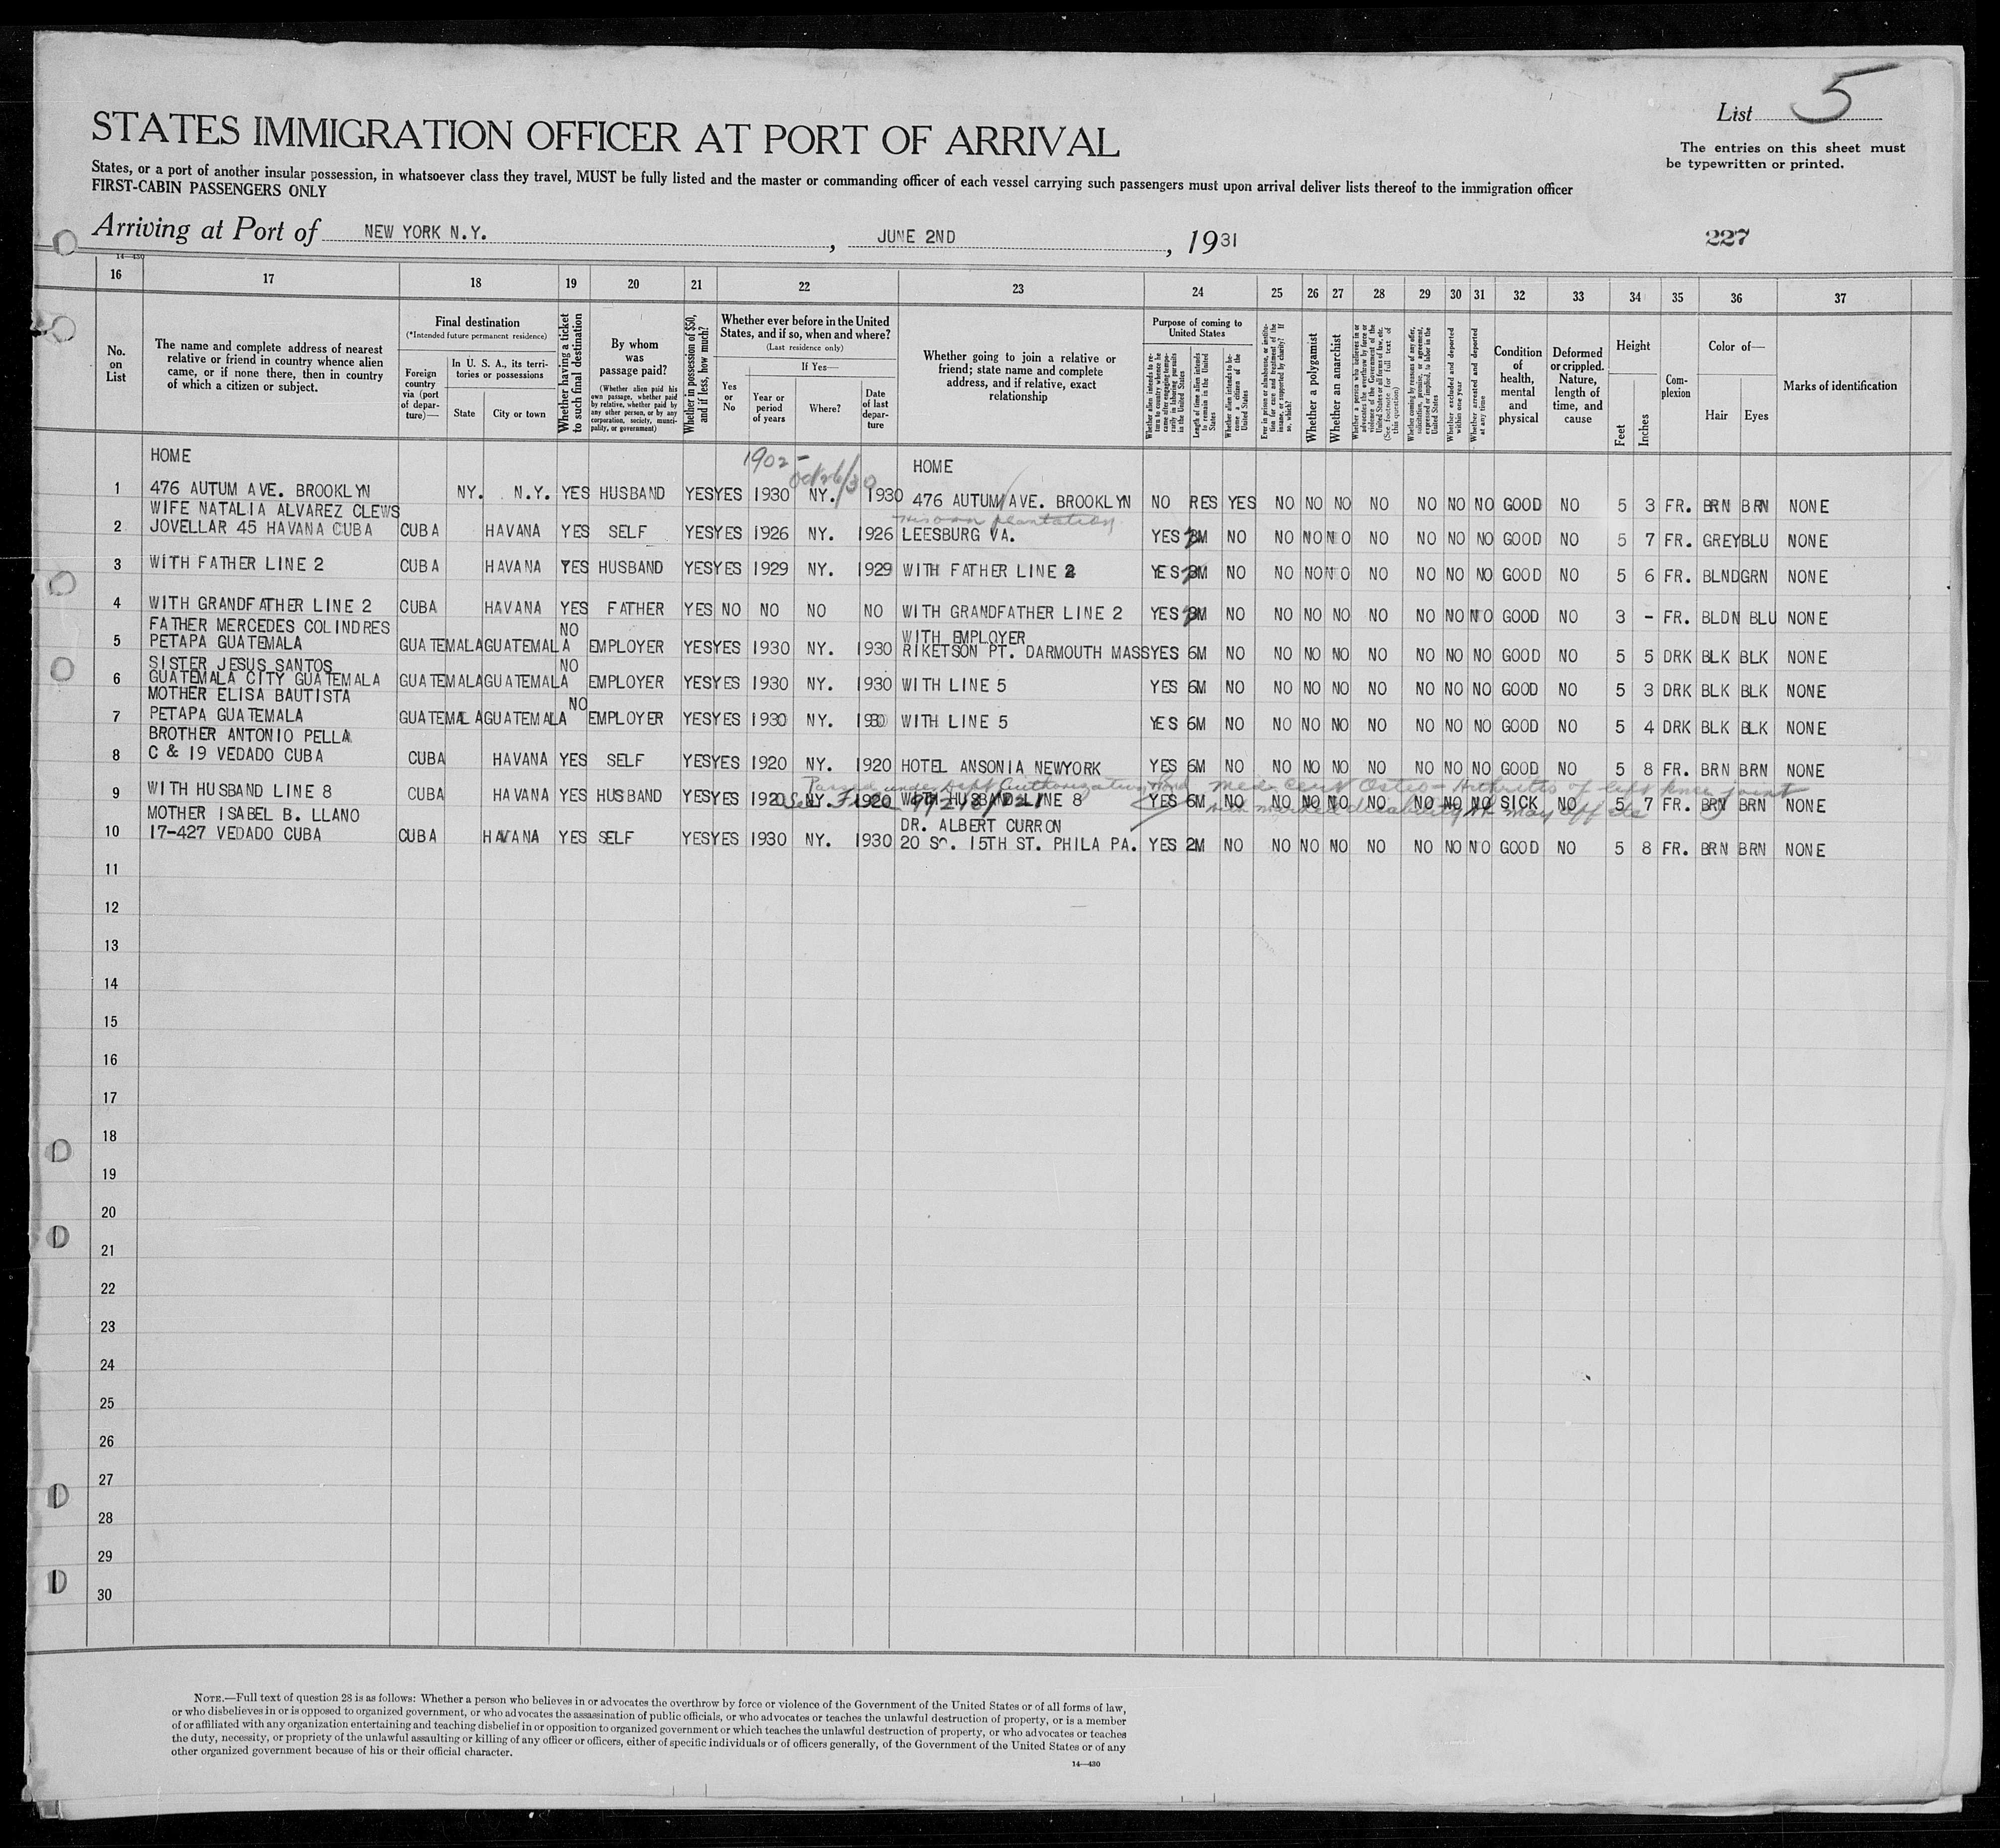 List 5
STATES IMMIGRATION OFFICER AT PORT OF ARRIVAL
The entries on this sheet must
be typewritten or printed.
States, or a port of another insular possession, in whatsoever class they travel, MUST be fully listed and the master or commanding officer of each vessel carrying such passengers must upon arrival deliver lists thereof to the immigration officer
FIRST-CABIN PASSENGERS ONLY
Arriving at Port of NEW YORK N.Y. , JUNE 2ND , 1931
227
14—430
16 17 18 19 20 21 22 23 24 25 26 27 28 29 30 31 32 33 34 35 36 37
No. on List
The name and complete address of nearest relative or friend in country whence alien came, or if none there, then in country of which a citizen or subject.
Final destination
(*Intended future permanent residence)
Foreign country via (port of departure)—
In U. S. A., its territories or possessions
State
City or town
Whether having a ticket to such final destination
By whom was passage paid?
(Whether alien paid his own passage, whether paid by relative, whether paid by any other person, or by any corporation, society, municipality, or government)
Whether in possession of $50, and if less, how much?
Whether ever before in the United States, and if so, when and where?
(Last residence only)
Yes or No
If Yes—
Year or period of years
Where?
Date of last departure
Whether going to join a relative or friend; state name and complete address, and if relative, exact relationship
Purpose of coming to United States
Whether alien intends to return to country whence he came after engaging temporarily in laboring pursuits in the United States
Length of time alien intends to remain in the United States
Whether alien intends to become a citizen of the United States
Ever in prison or almshouse, or institution for care and treatment of the insane, or supported by charity? If so, which?
Whether a polygamist
Whether an anarchist
Whether a person who believes in or advocates the overthrow by force or violence of the Government of the United States or all forms of law, etc. (See footnote for full text of this question)
Whether coming by reasons of any offer, solicitation, promise, or agreement, expressed or implied, to labor in the United States
Whether excluded and deported within one year
Whether arrested and deported at any time
Condition of health, mental and physical
Deformed or crippled. Nature, length of time, and cause
Height
Feet
Inches
Complexion
Color of—
Hair
Eyes
Marks of identification
HOME 1902- Oct 26/30 HOME
1 476 AUTUM AVE. BROOKLYN NY. N.Y. YES HUSBAND YES YES 1930 NY. 1930 476 AUTUM AVE. BROOKLYN NO RES YES NO NO NO NO NO NO NO GOOD NO 5 3 FR. BRN BRN NONE
WIFE NATALIA ALVAREZ CLEWS his own plantation
2 JOVELLAR 45 HAVANA CUBA CUBA HAVANA YES SELF YES YES 1926 NY. 1926 LEESBURG VA. YES M NO NO NO NO NO NO NO NO GOOD NO 5 7 FR. GREY BLU NONE
3 WITH FATHER LINE 2 CUBA HAVANA YES HUSBAND YES YES 1929 NY. 1929 WITH FATHER LINE 2 YES M NO NO NO NO NO NO NO NO GOOD NO 5 6 FR. BLND GRN NONE
4 WITH GRANDFATHER LINE 2 CUBA HAVANA YES FATHER YES NO NO NO NO WITH GRANDFATHER LINE 2 YES M NO NO NO NO NO NO NO NO GOOD NO 3 - FR. BLDN BLU NONE
FATHER MERCEDES COLINDRES NO WITH EMPLOYER
5 PETAPA GUATEMALA GUATEMALA GUATEMALA EMPLOYER YES YES 1930 NY. 1930 RIKETSON PT. DARMOUTH MASS YES 6M NO NO NO NO NO NO NO NO GOOD NO 5 5 DRK BLK BLK NONE
SISTER JESUS SANTOS NO
6 GUATEMALA CITY GUATEMALA GUATEMALA GUATEMALA EMPLOYER YES YES 1930 NY. 1930 WITH LINE 5 YES 6M NO NO NO NO NO NO NO NO GOOD NO 5 3 DRK BLK BLK NONE
MOTHER ELISA BAUTISTA NO
7 PETAPA GUATEMALA GUATEMALA GUATEMALA EMPLOYER YES YES 1930 NY. 1930 WITH LINE 5 YES 6M NO NO NO NO NO NO NO NO GOOD NO 5 4 DRK BLK BLK NONE
BROTHER ANTONIO PELLA
8 C & 19 VEDADO CUBA CUBA HAVANA YES SELF YES YES 1920 NY. 1920 HOTEL ANSONIA NEWYORK YES 6M NO NO NO NO NO NO NO NO GOOD NO 5 8 FR. BRN BRN NONE
Passed under Dept Authorization Med Cert Osteo-Arthritis of left knee joint
9 WITH HUSBAND LINE 8 CUBA HAVANA YES HUSBAND YES YES 1920 NY. 1920 WITH HUSBAND LINE 8 YES 6M NO NO NO NO NO NO NO NO SICK NO 5 7 FR. BRN BRN NONE
MOTHER ISABEL B. LLANO DR. ALBERT CURRON
10 17-427 VEDADO CUBA CUBA HAVANA YES SELF YES YES 1930 NY. 1930 20 SO. 15TH ST. PHILA PA. YES 2M NO NO NO NO NO NO NO NO GOOD NO 5 8 FR. BRN BRN NONE
11
12
13
14
15
16
17
18
19
20
21
22
23
24
25
26
27
28
29
30
NOTE.—Full text of question 28 is as follows: Whether a person who believes in or advocates the overthrow by force or violence of the Government of the United States or of all forms of law,
or who disbelieves in or is opposed to organized government, or who advocates the assassination of public officials, or who advocates or teaches the unlawful destruction of property, or is a member
of or affiliated with any organization entertaining and teaching disbelief in or opposition to organized government or which teaches the unlawful destruction of property, or who advocates or teaches
the duty, necessity, or propriety of the unlawful assaulting or killing of any officer or officers, either of specific individuals or of officers generally, of the Government of the United States or of any
other organized government because of his or their official character.
14—430